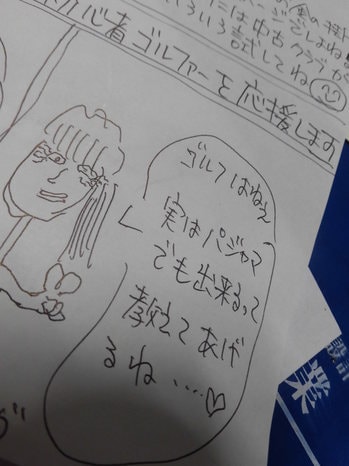 には中古クラブが
いろいろ試してね
初心者ゴルファーを応援します
ゴルフはねぇ
実はパジャマ
でも出来るって
教えてあげ
るね‥‥♡
業